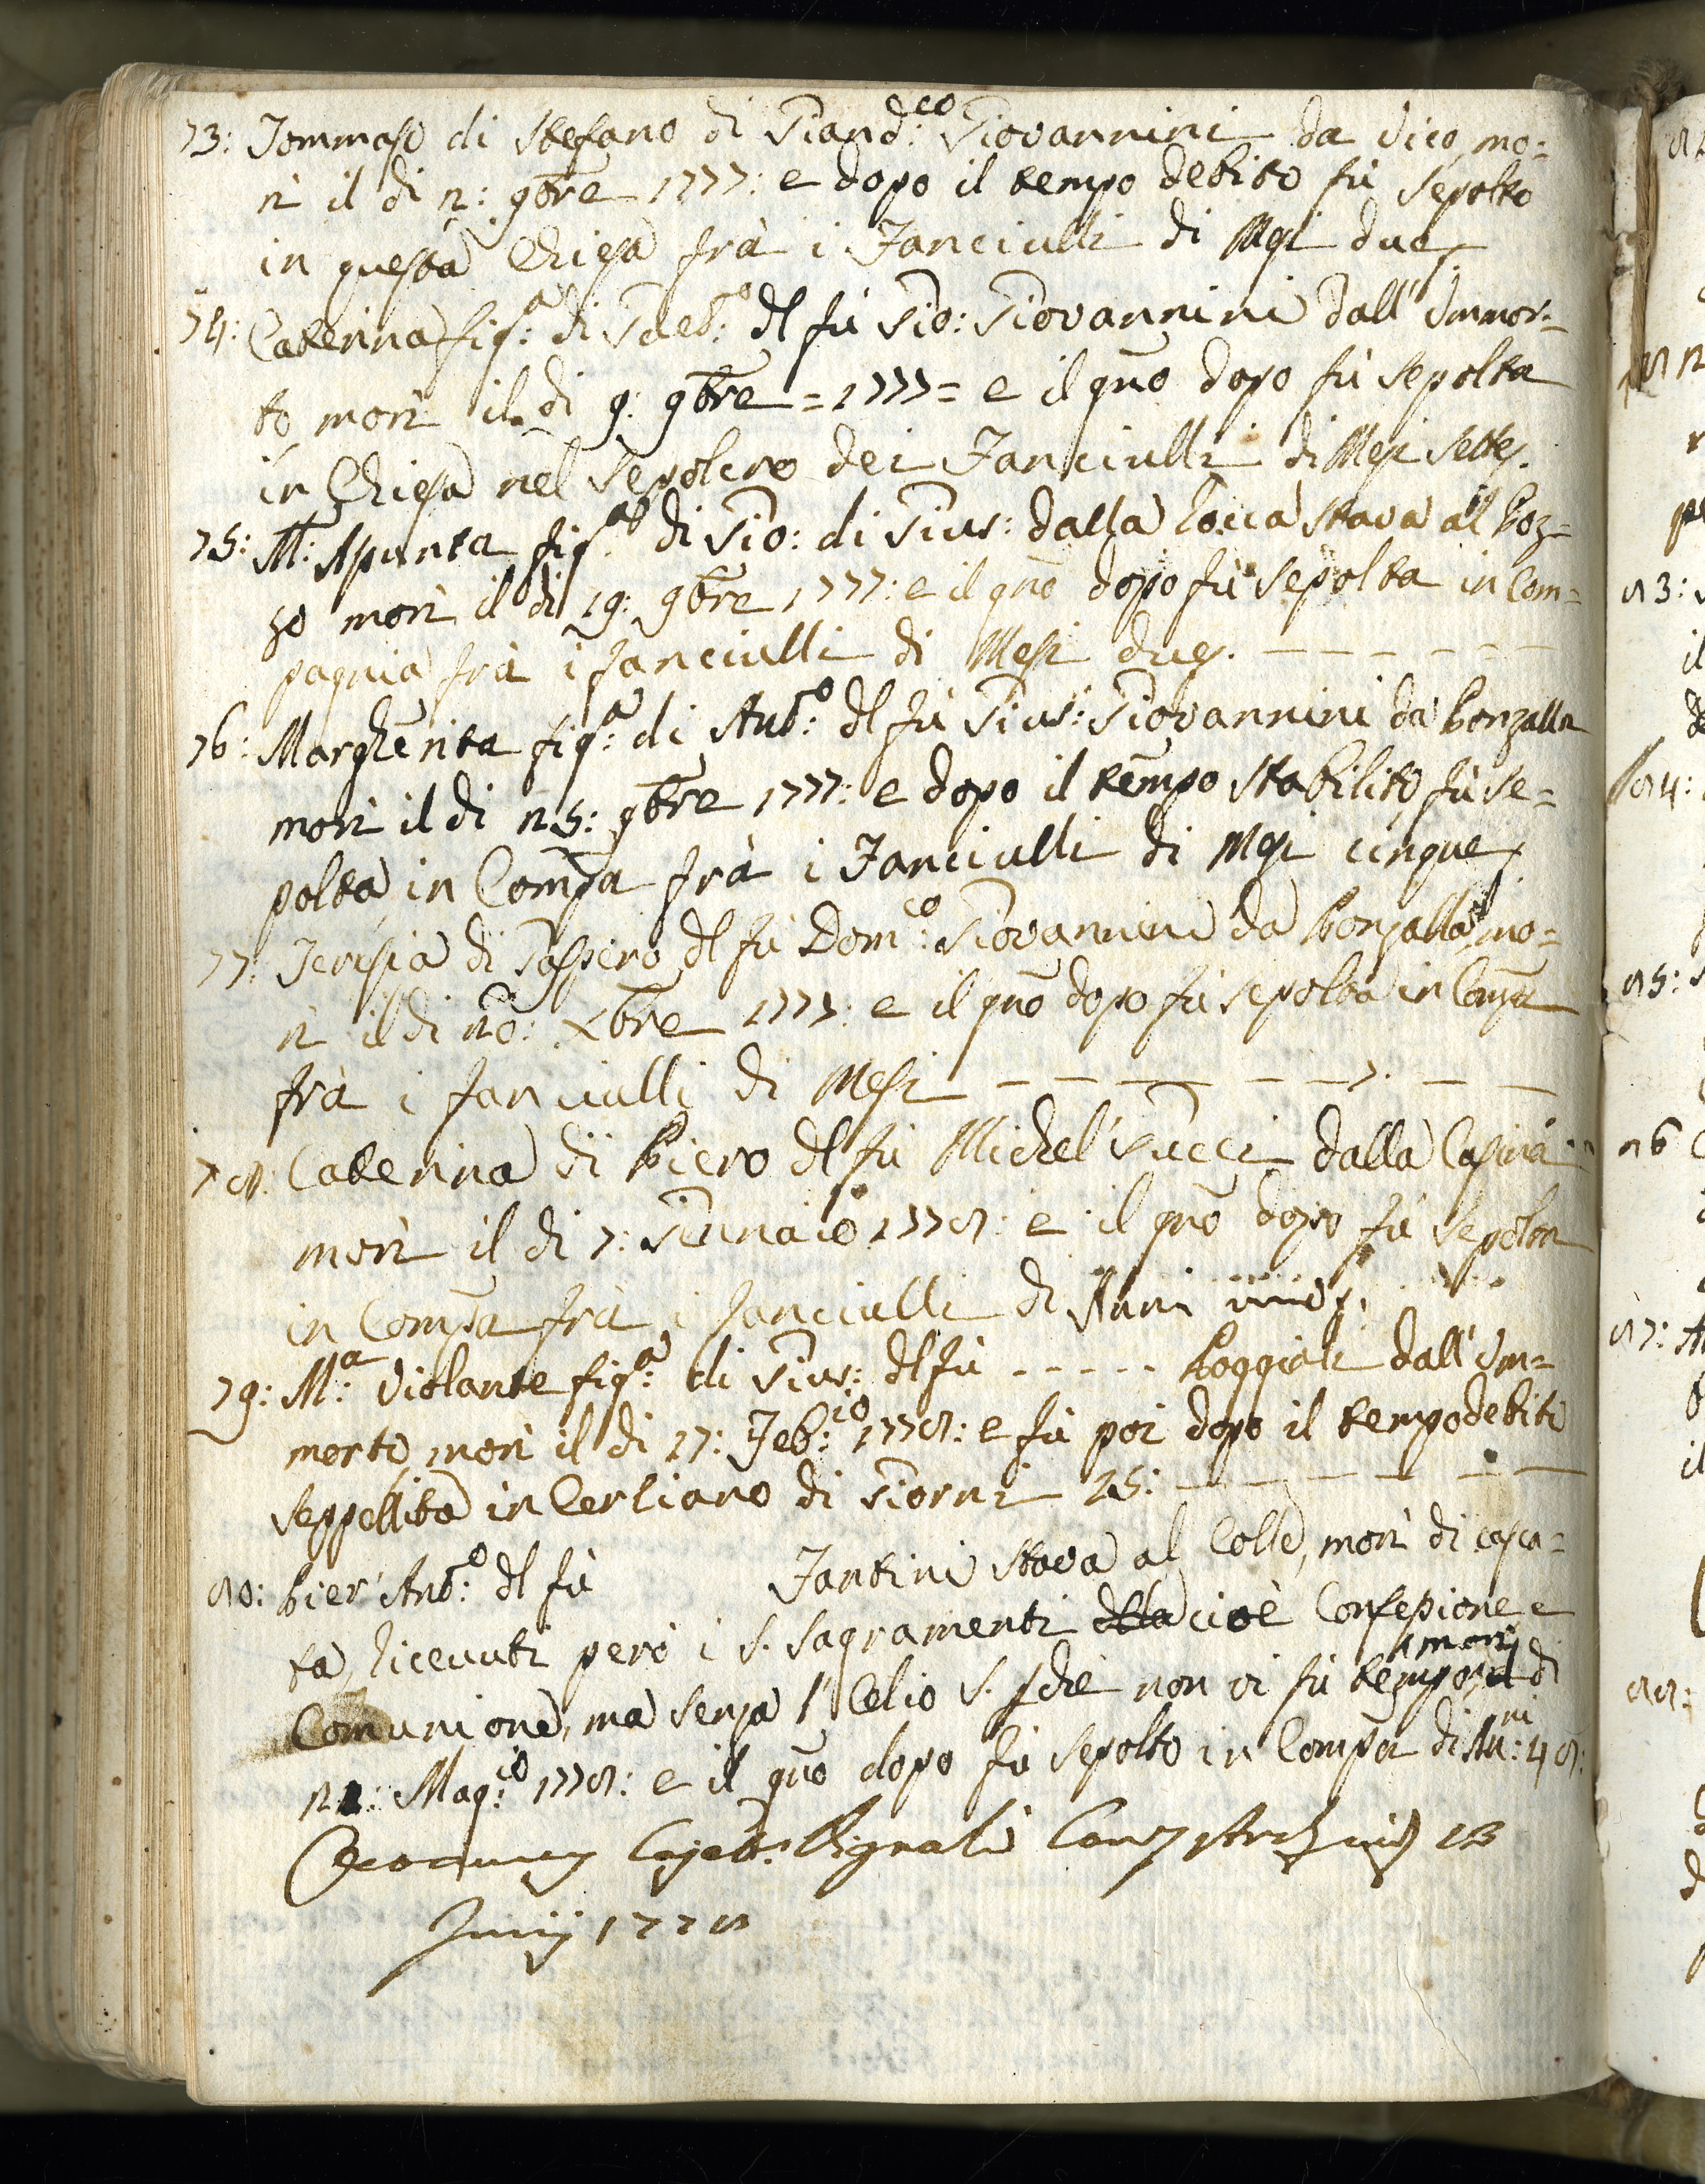 73: Tommaso di Stefano di Giand:co Giovannini da Vico, mo=
rì il dì 2: 9bre 1777: e dopo il tempo debito fù sepolto
in questa Chiesa frà i Fanciulli di Mesi due.
74: Caterina fig:a di Gaet:o dl fù Gio: Giovannini dall' Immor=
to morì il dì 9: 9bre = 1777 = e il gno dopo fù sepolta
in Chiesa nel Sepolcro dei Fanciulli di Mesi sette.
75: M: Assunta fig:a di Gio: di Gius: dalla Rocca stava al Poz=
zo morì il dì 19: 9bre 1777: e il gno dopo fù sepolta in Com=
pagnia frà i fanciulli di Mesi due. — — — — — —
76: Margherita fig:a di Ant:o dl fù Gius: Giovannini da Ponzalla
morì il dì 25: 9bre 1777: e dopo il tempo stabilito fù se=
polta in Compa frà i Fanciulli di Mesi cinque
77: Teresia di Gaspero dl fù Dom:co Giovannini da Ponzalla, mo=
rì il dì 20: Xbre 1777: e il gno dopo fù sepolta in Compa
frà i fanciulli di Mesi — — — — — 7. — —
78: Caterina di Piero dl fù Michel' Gucci dalla Casina
morì il dì 7: Gennaio 1778: e il gno dopo fù sepolta
in Compa frà i fanciulli di Anni uno.
79: M:a Violante fig:a di Gius: dl fù - - - - - Poggiali dall' Im=
morto, morì il dì 17: Feb:io 1778: e fù poi dopo il tempo debito
seppellita in Cerliano di Giorni 25: — — — — —
80: Pier' Ant:o dl fù Fantini stava al Colle, morì di casca=
ta, ricevuti però i S. Sagramenti cioè Confessione e
Comunione, ma senza l' Olio S. che non vi fù tempo, morì il dì
22: Mag:io 1778: e il gno dopo fù sepolto in Compa di An:ni 48:
Cajet: Pignali 13
Junij 1778
80:
83:
84:
85:
86
87:
88: